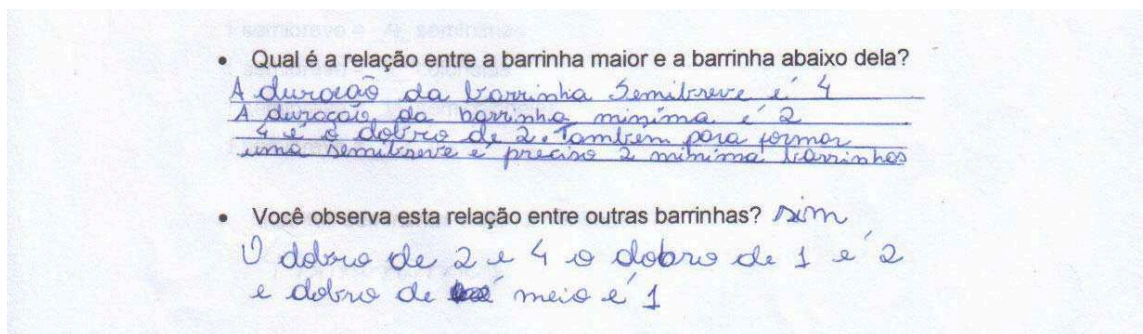 • Qual é a relação entre a barrinha maior e a barrinha abaixo dela?
A duração da barrinha Semibreve é 4
A duração da barrinha mínima é 2
4 é o dobro de 2. Também para formar
uma semibreve é preciso 2 mínima barrinhas
• Você observa esta relação entre outras barrinhas? sim
O dobro de 2 e 4 o dobro de 1 é 2
e dobro de meio é 1